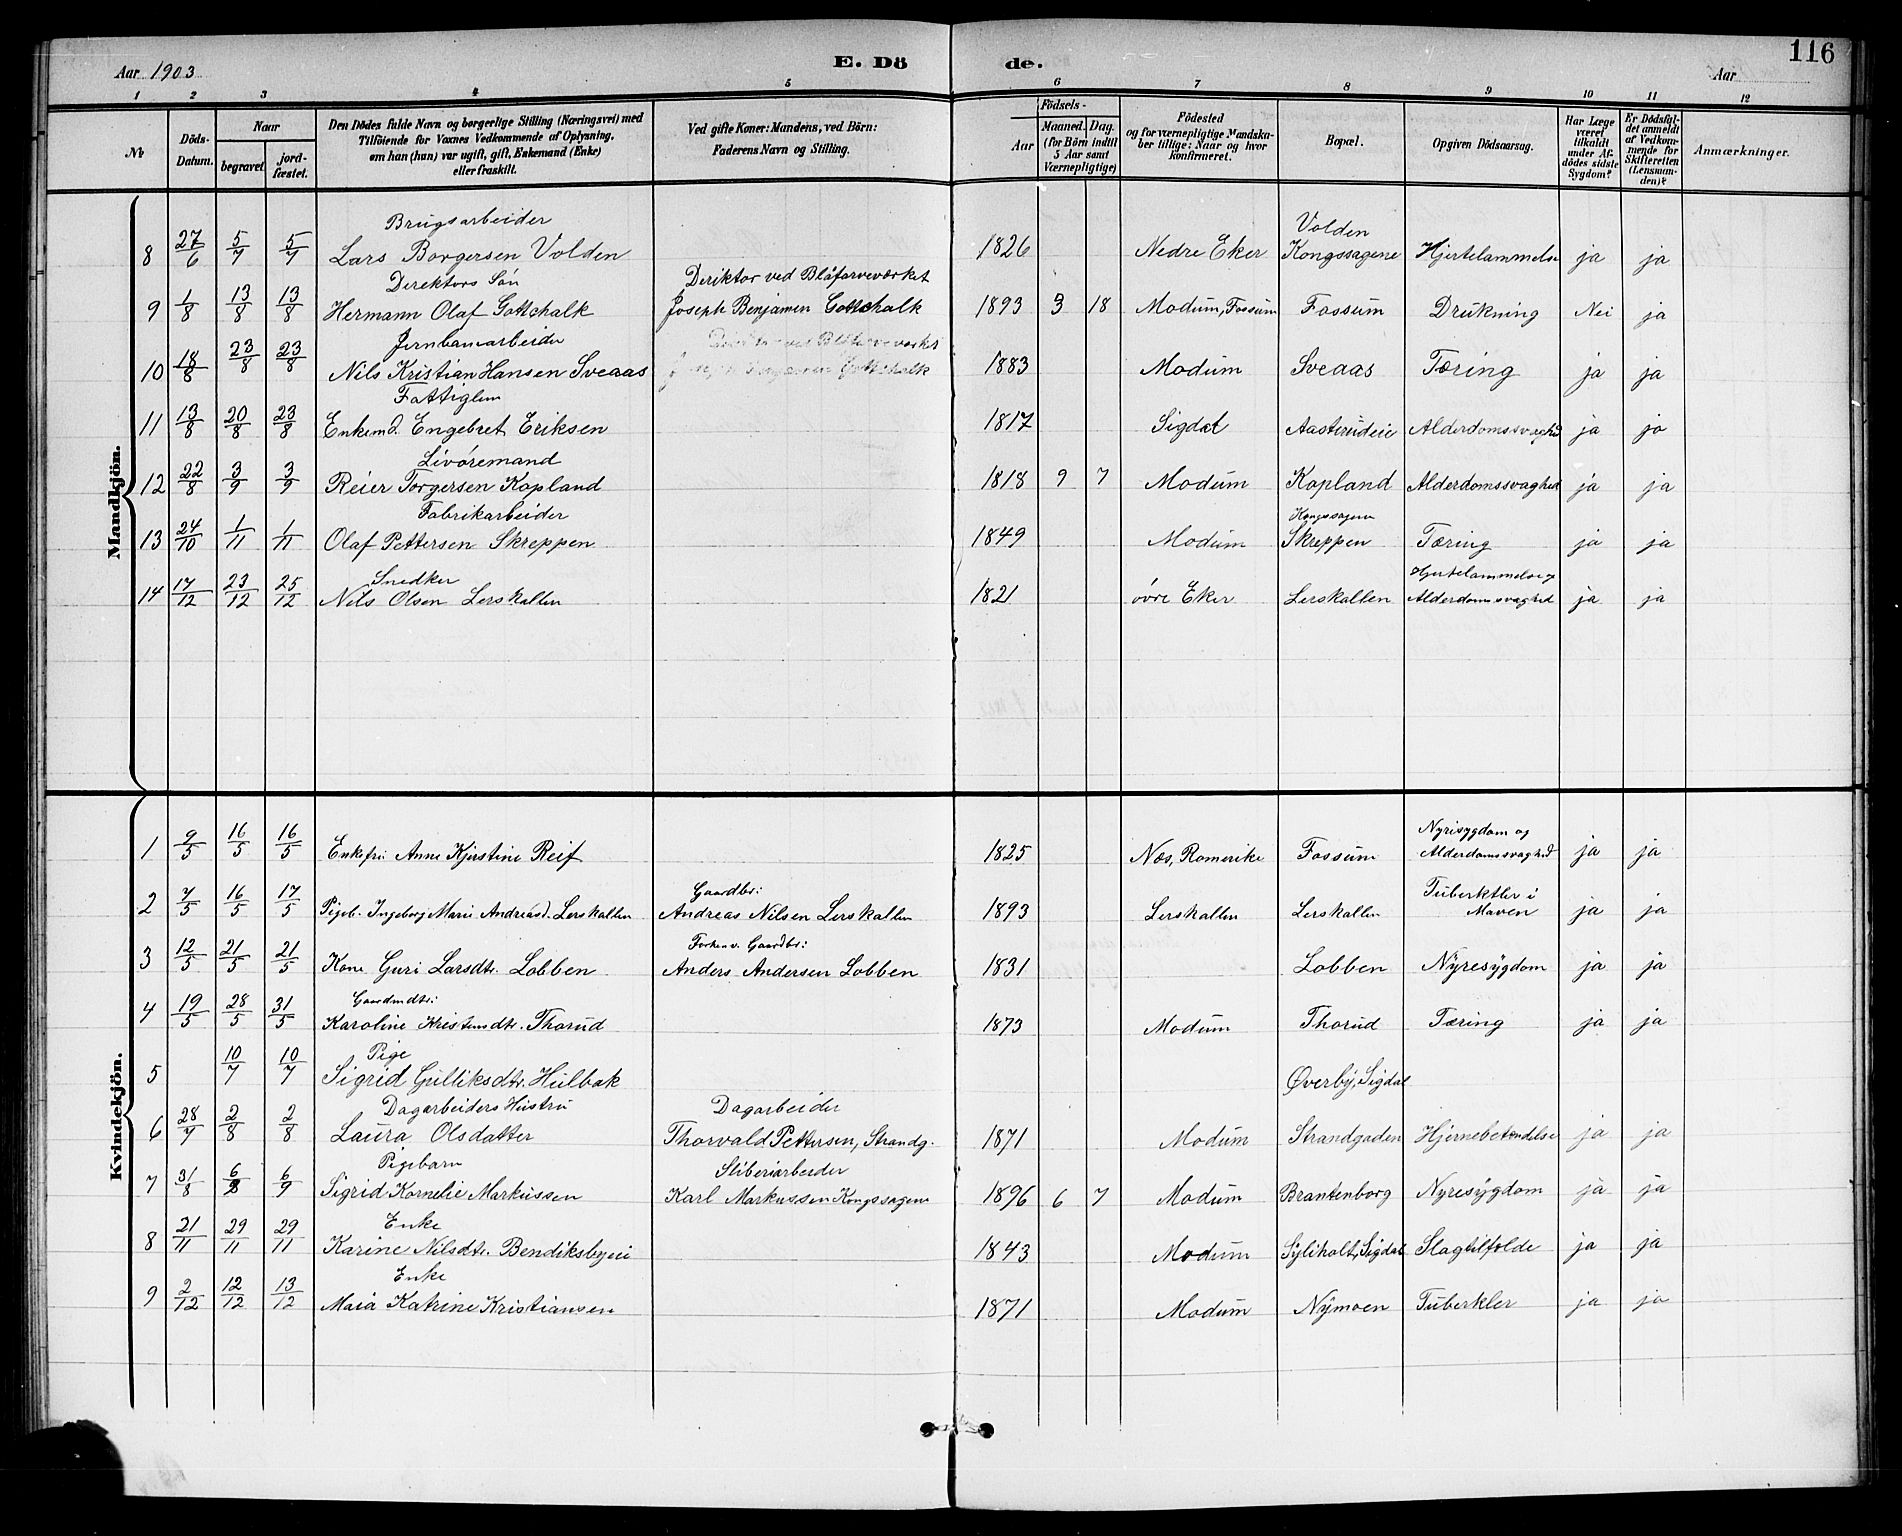 116
Aar 1903
E. Dö de.
Aar
1 2 3 4 5 6 7 8 9 10 11 12
No
Döds-Datum.
Naar
begravet
jord-fæstet.
Den Dödes fulde Navn og borgerlige Stilling (Næringsvei) med
Tilföiende for Voxnes Vedkommende af Oplysning,
om han (hun) var ugift, gift, Enkemand (Enke)
eller fraskilt.
Ved gifte Koner: Mandens, ved Börn:
Faderens Navn og Stilling.
Födsels-
Aar
Maaned. Dag.
(for Börn indtil
5 Aar samt
Værnepligtige)
Födested
og for værnepligtige Mandska-
ber tillige: Naar og hvor
konfirmeret.
Bopæl.
Opgiven Dödsaarsag.
Har Læge
været
tilkaldt
under Af-
dödes sidste
Sygdom?
Er Dödsfal-
det anmeldt
af Vedkom-
mende for
Skifteretten
(Lensman-
den)?
Anmærkninger.
Mandkjön.
Brugsarbeider Volden
8 27/6 5/7 5/7 Lars Borgersen Volden 1826 Nedre Eker Kongssagene Hjertelammelse ja ja
Direktors Søn Deriktor ved Blåfarveverket
9 1/8 13/8 13/8 Hermann Olaf Gottchalk Joseph Benjamen Gottchalk 1893 3 18 Modum, Fossum Fossum Drukning Nei ja
Jernbanearbeider
10 18/8 23/8 23/8 Nils Kristian Hansen Sveaas 1883 Modum Sveaas Tæring ja ja
Fattiglem
11 13/8 20/8 23/8 Enkemd. Engebret Eriksen 1817 Sigdal Aasterudeie Alderdomssvaghed ja ja
Livøremand
12 22/8 3/9 3/9 Reier Torgersen Kopland 1818 9 7 Modum Kopland Alderdomssvaghed ja ja
Fabrikarbeider Kongssagene
13 24/10 1/11 1/11 Olaf Pettersen Skreppen 1849 Modum Skreppen Tæring ja ja
Snedker Hjertelammelse og
14 17/12 23/12 25/12 Nils Olsen Lerskallen 1821 øvre Eker Lerskallen Alderdomssvaghed ja ja
Kvindekjön.
Nyrisygdom og
1 9/5 16/5 16/5 Enkefru Anne Kjerstine Reif 1825 Næs, Romerike Fossum Alderdomssvaghed ja ja
Gaardbr: Tuberkler i
2 7/5 16/5 17/5 Pigeb. Ingeborg Marie Andreasd. Lerskallen Andreas Nilsen Lerskallen 1893 Lerskallen Lerskallen Maven ja ja
Forhenv. Gaardbr:
3 12/5 21/5 21/5 Kone Guri Larsdtr. Lobben Anders Andersen Lobben 1831 Lobben Nyresygdom ja ja
Gaardmdtr:
4 19/5 28/5 31/5 Karoline Kristensdtr. Thorud 1873 Modum Thorud Tæring ja ja
Pige
5 10/7 10/7 Sigrid Gulliksdtr. Hulbak Øverby, Sigdal
Dagarbeiders Hustru Dagarbeider
6 28/7 2/8 2/8 Laura Olsdatter Thorvald Pettersen, Strandg. 1871 Modum Strandgaden Hjernebetendelse ja ja
Pigebarn Sliberiarbeider
7 31/8 6/8 6/9 Sigrid Kornelie Markussen Karl Markussen Kongssagene 1896 6 7 Modum Brantenborg Nyresygdom ja ja
Enke
8 21/11 29/11 29/11 Karine Nilsdtr. Bendiksbyeie 1843 Modum Syliholt, Sigdal Slagtilfælde ja ja
Enke
9 2/12 12/12 13/12 Maia Katrine Kristiansen 1871 Modum Nymoen Tuberkler ja ja